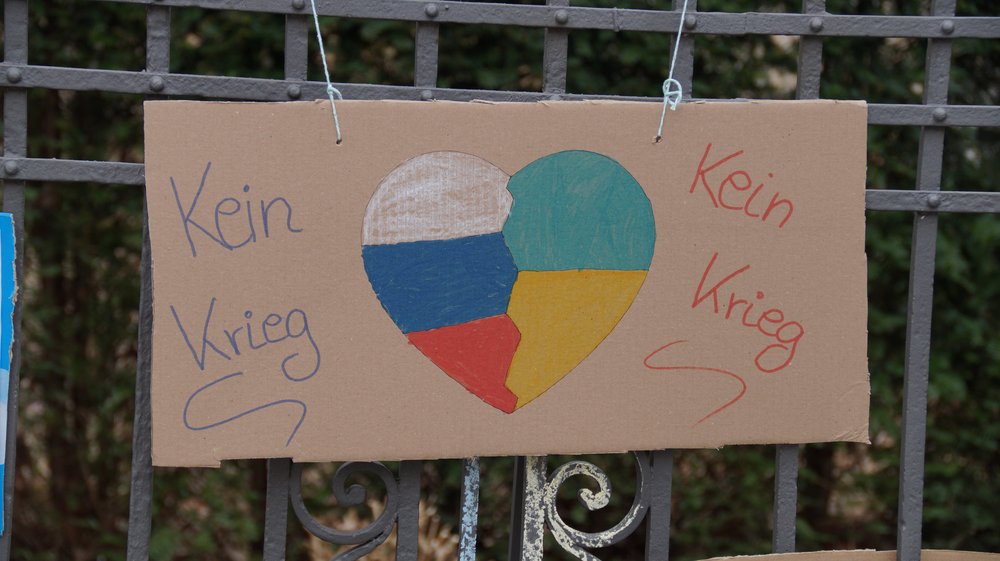 Kein
Krieg
Kein
Krieg